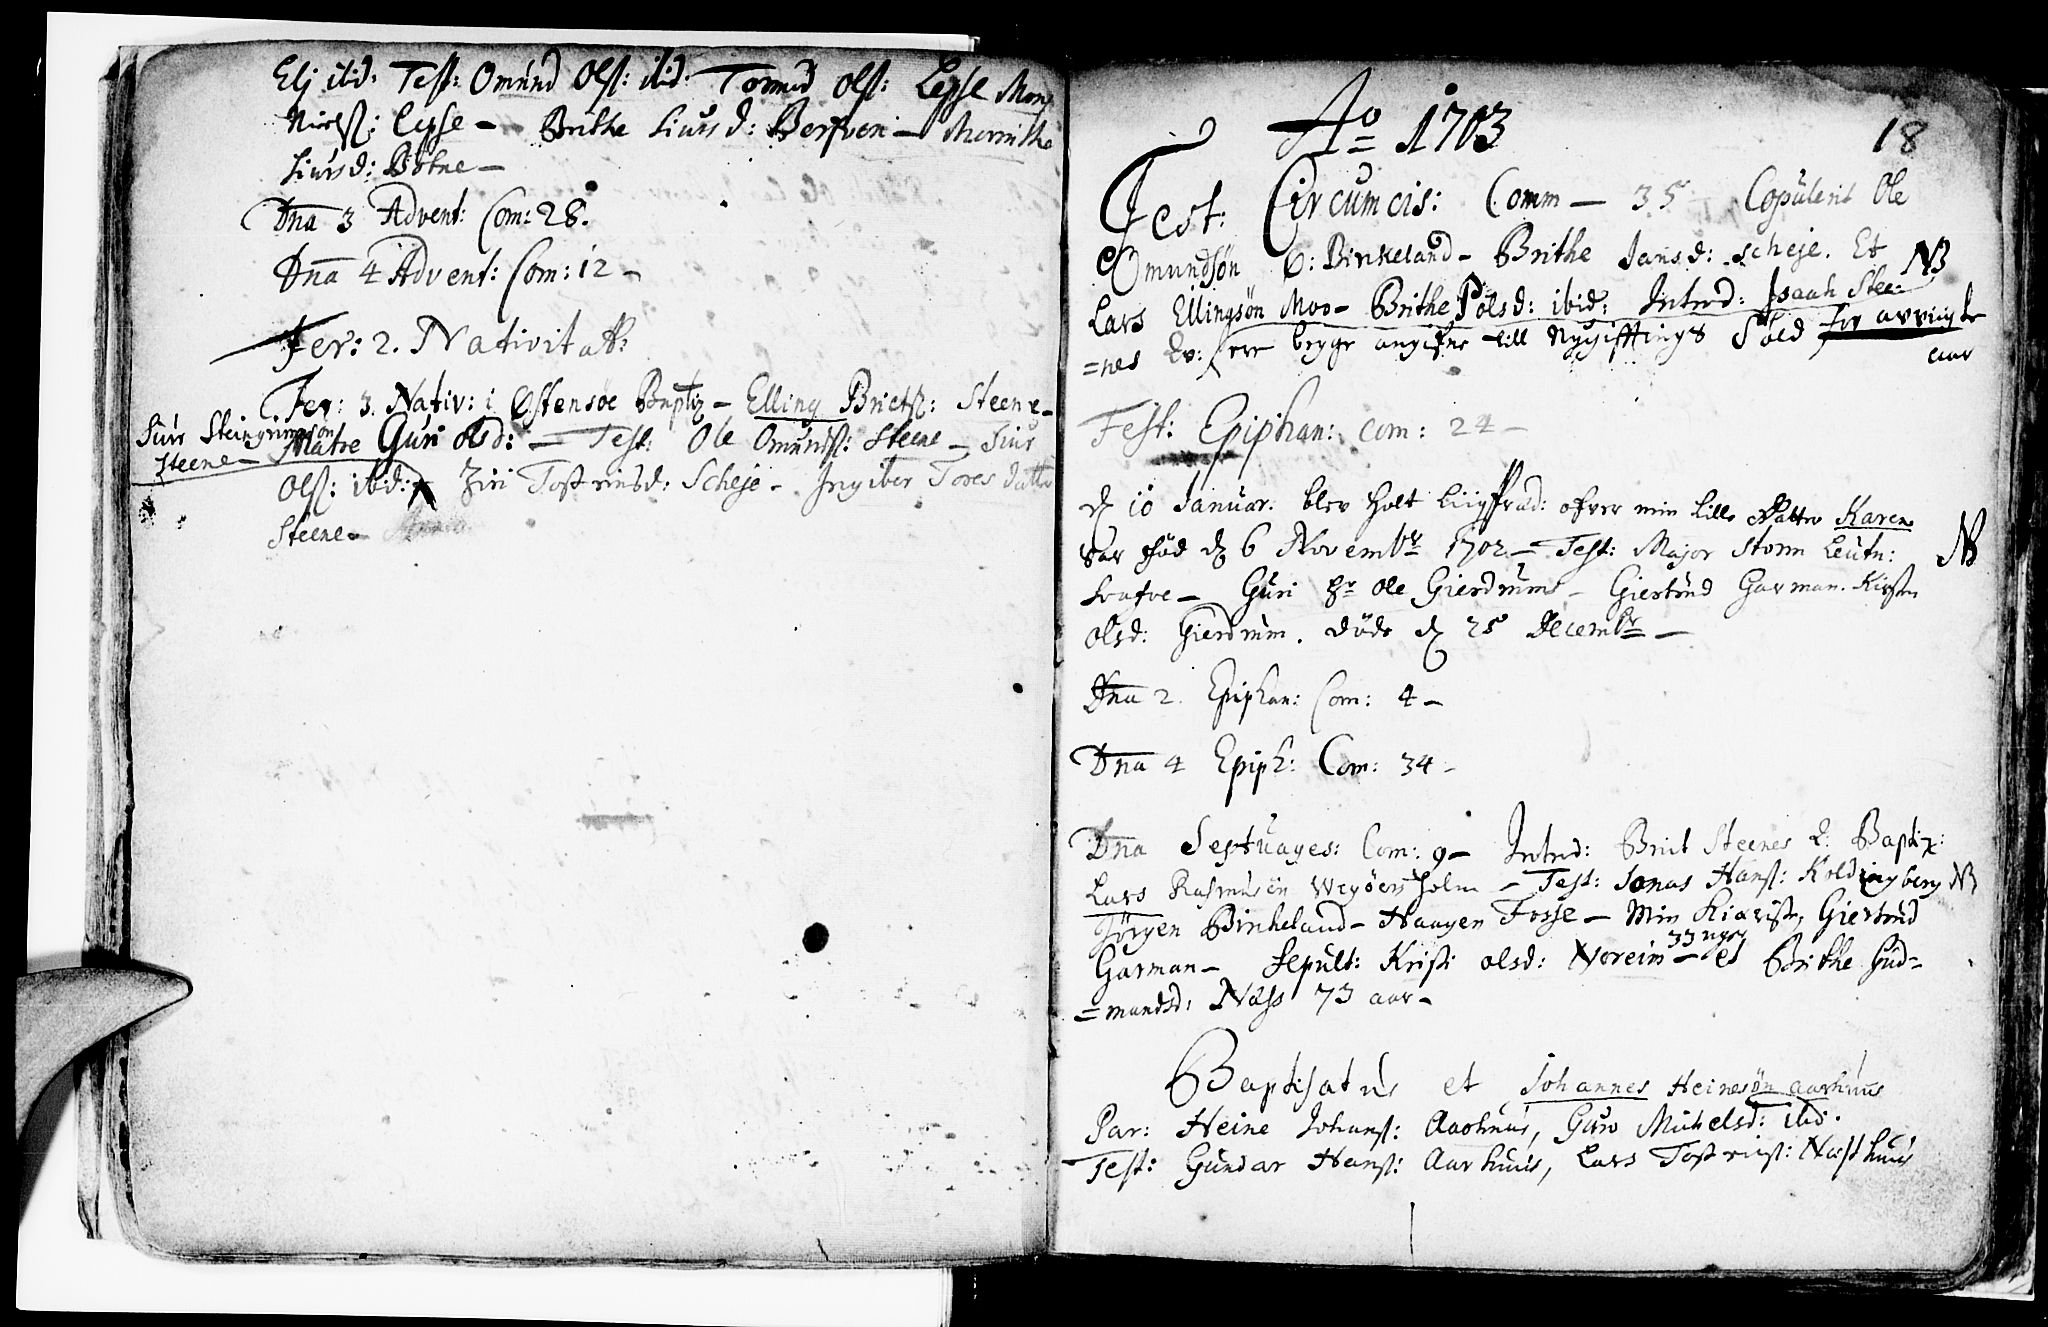 Elj ibid. Test: Omund Ols: ibid. Tormod Ols: Lepse Mons
Niels: Lepse – Brithe Siursd: Berfven – Merrithe
Siursd: Botne –
Dna 3 Advent: Com: 28.
Dna 4 Advent: Com: 12 –
Fer: 2. Nativitat:
Fer: 3. Nativ: i Østensøe Baptiz – Elling Briets: Steene –
Siur Steingrimsøn
Steene –
Matre Guri Olsd: – Test: Ole Omunds: Steene – Siur
Ols: ibid: Ziri Tostensd: Scheje – Ingiber Tores datter
Steene –
18
Ao 1703
Fest: Circumcis: Comm – 35 Copulerit Ole
Omundsøn Ø: Birkeland – Brithe Jansd: Scheje. Et NB
Lars Ellingsøn Moo – Brithe Polsd: ibid: Introd: Isaach Stee-
=nes Ev: ere begge angifne till Nygifftings Sold for
aar
Fest: Epiphan: Com: 24 –
d 10 Januar: blev holt liigpræd: ofver min lille datter Karen
var fød d 6 Novembr 1702 – Test: Major Storm Leutn: NB
Guri Hr Ole Gierdrums – Giertrud Garman. Kirsten
Olsd: Gierdrum. døde d 25 Decembr –
Dna 2. Epiphan: Com: 4 –
Dna 4 Epiph: Com: 34 –
Dna Septuages: Com: 9 – Introd: Brict Steenes Q: Baptiz:
Lars Rasmusøn Wegøersholm – Test: Jonas Hans: Koldingberg NB
Jørgen Birkeland – Haagen Fosse – Min Kieriste, Giertrud
33 uger
Garman – Sepult: Kristi Olsd: Noreim – et Brithe Gud=
=mundsd: Næss 73 aar –
Baptisatus et Johannes Heinesøn Aarhuus
Par: Heine Johans: Aarhuus, Guro Michelsd: ibid.
Test: Gundar Hans: Aarhuus, Lars Tostens: Næsthuus